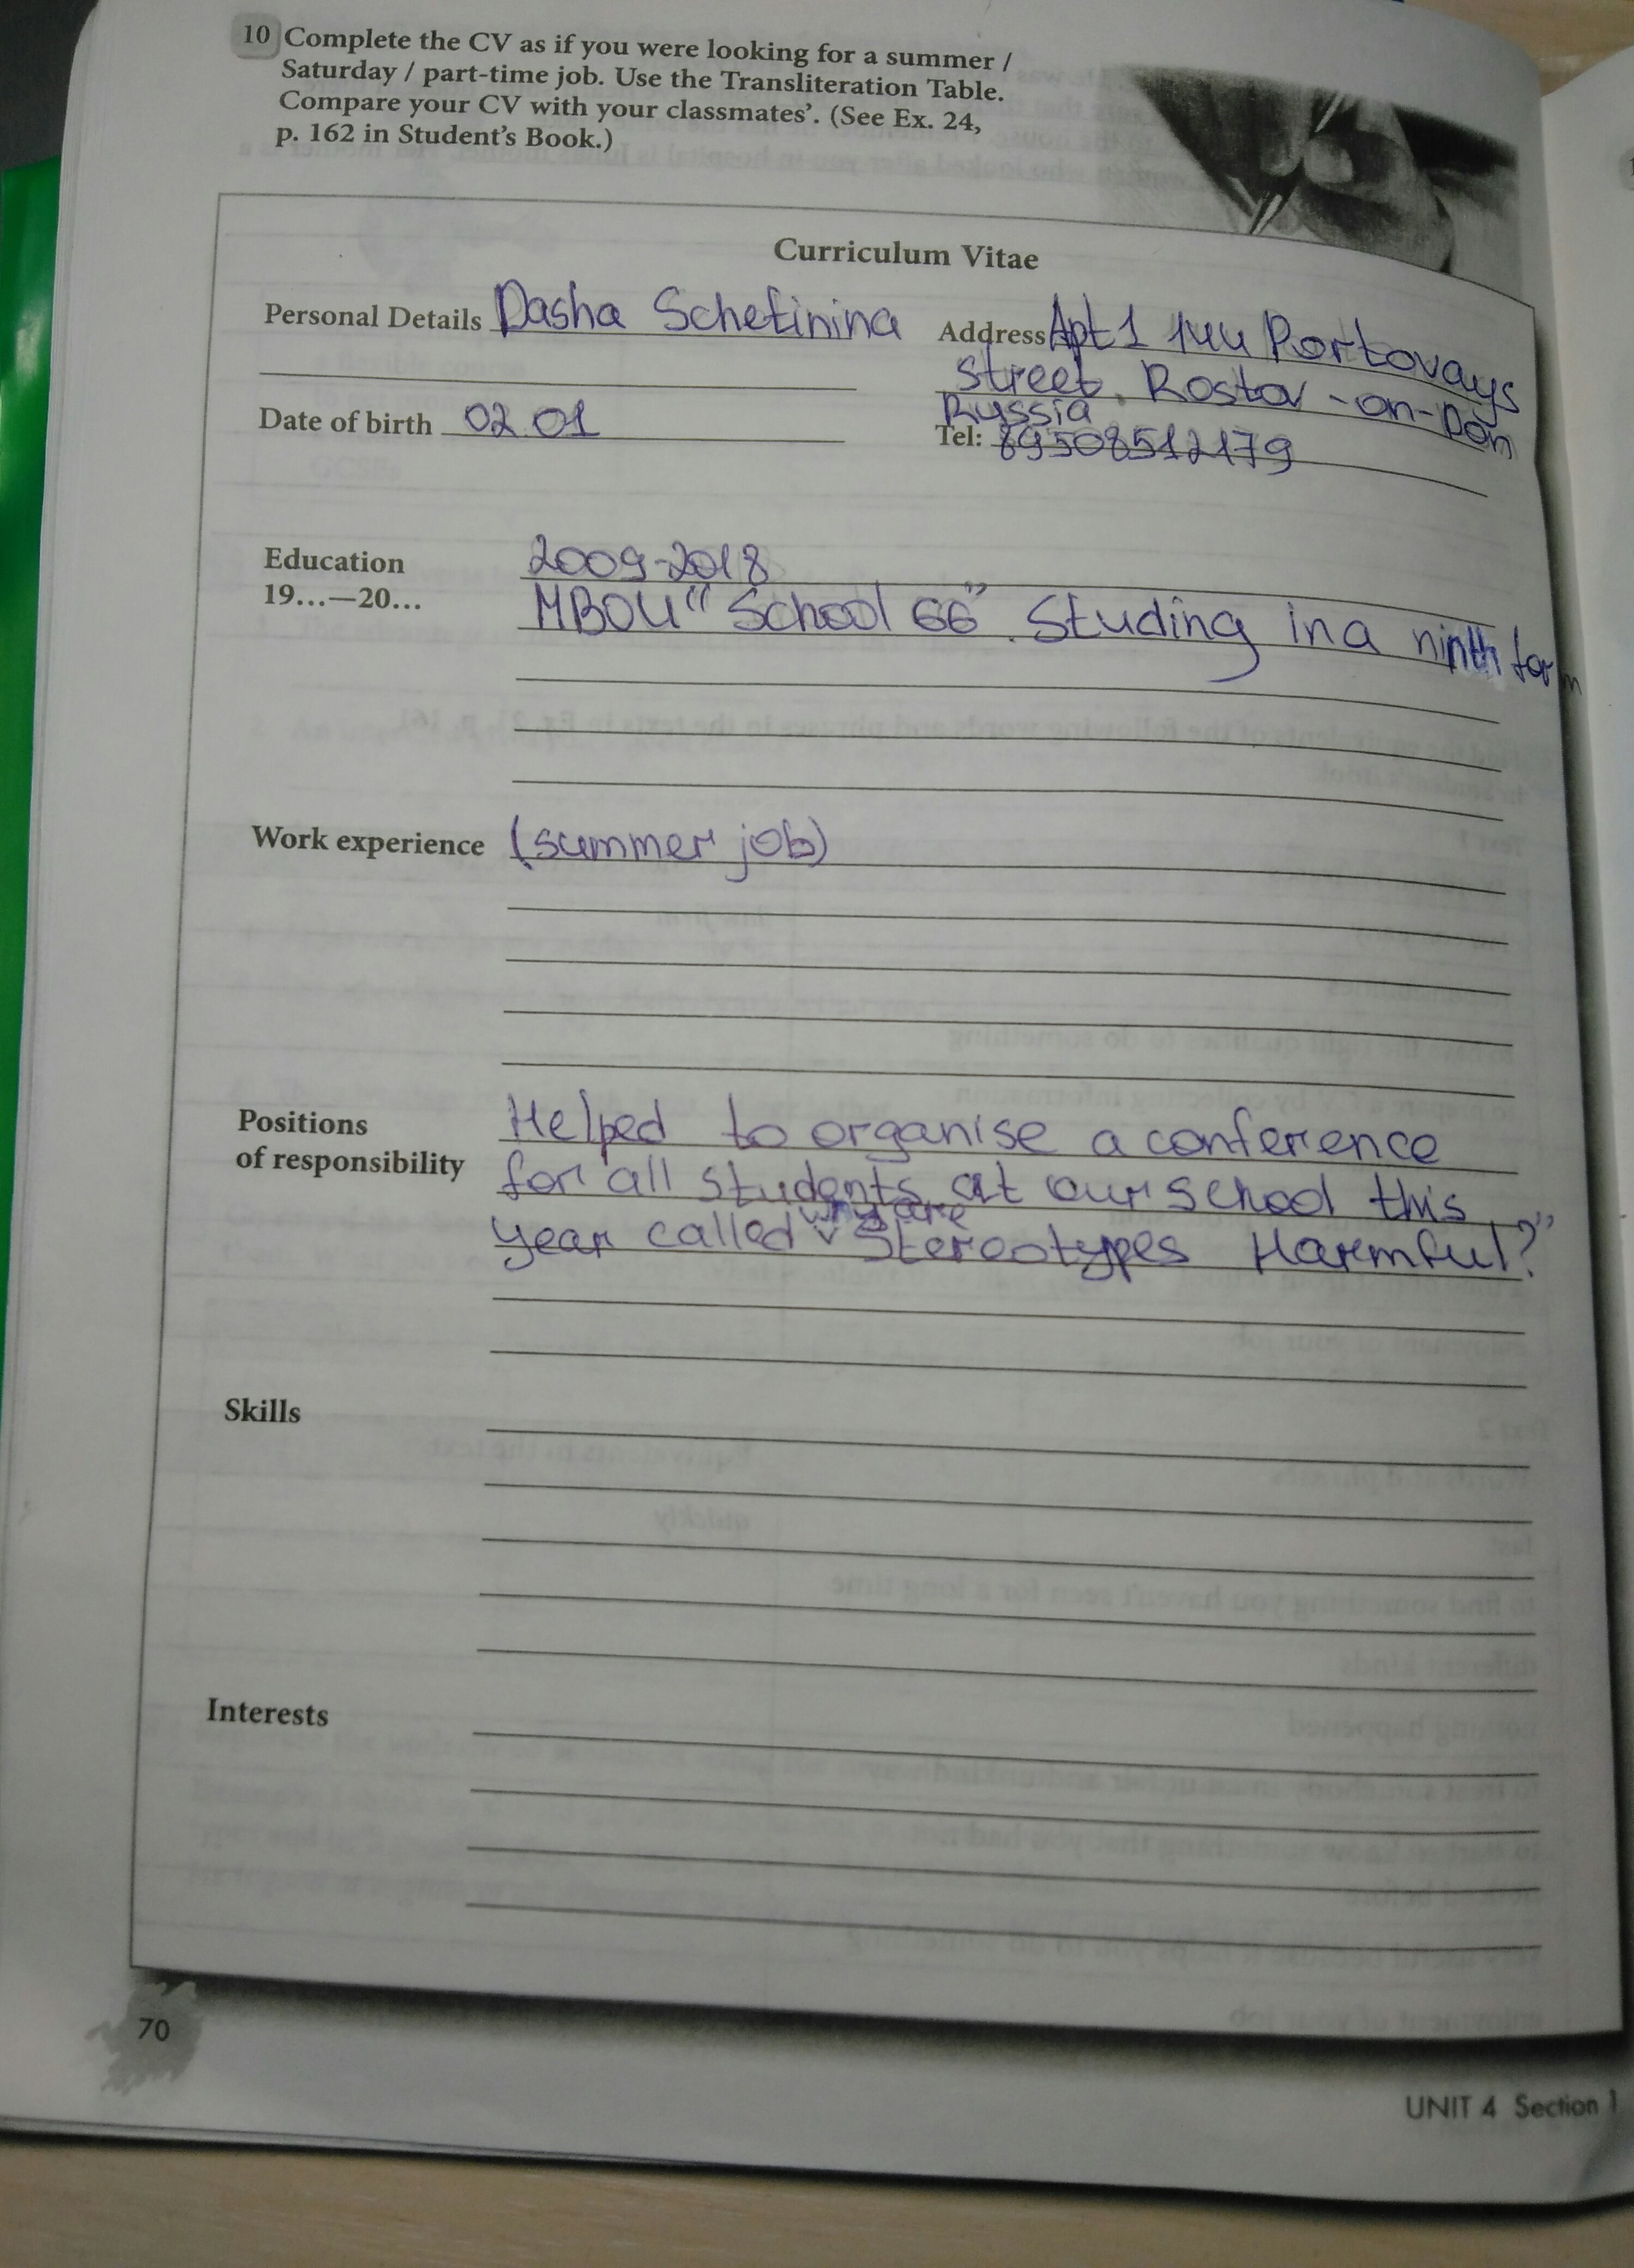 10 Complete the CV as if you were looking for a summer /
Saturday / part-time job. Use the Transliteration Table.
Compare your CV with your classmates'. (See Ex. 24,
p. 162 in Student's Book.)
Curriculum Vitae
Personal Details Dasha Schetinina
Address Apt 1 144 Portovays
street. Rostov-on-Don
Russia
Date of birth 02.01
Tel: 89508512179
Education 2009-2018
19...—20... MBOU "School 66". Studing in a ninth form
Work experience (summer job)
Positions Helped to organise a conference
of responsibility for all students at our school this
why are
year called Stereotypes Harmful?"
Skills
Interests
70
UNIT 4 Section 1